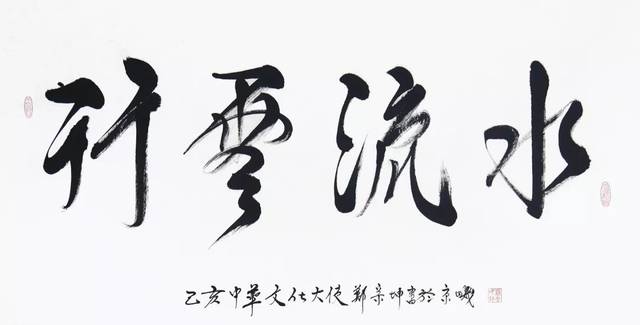 行雲流水
乙亥中華文化大使鄭坤書於京畿